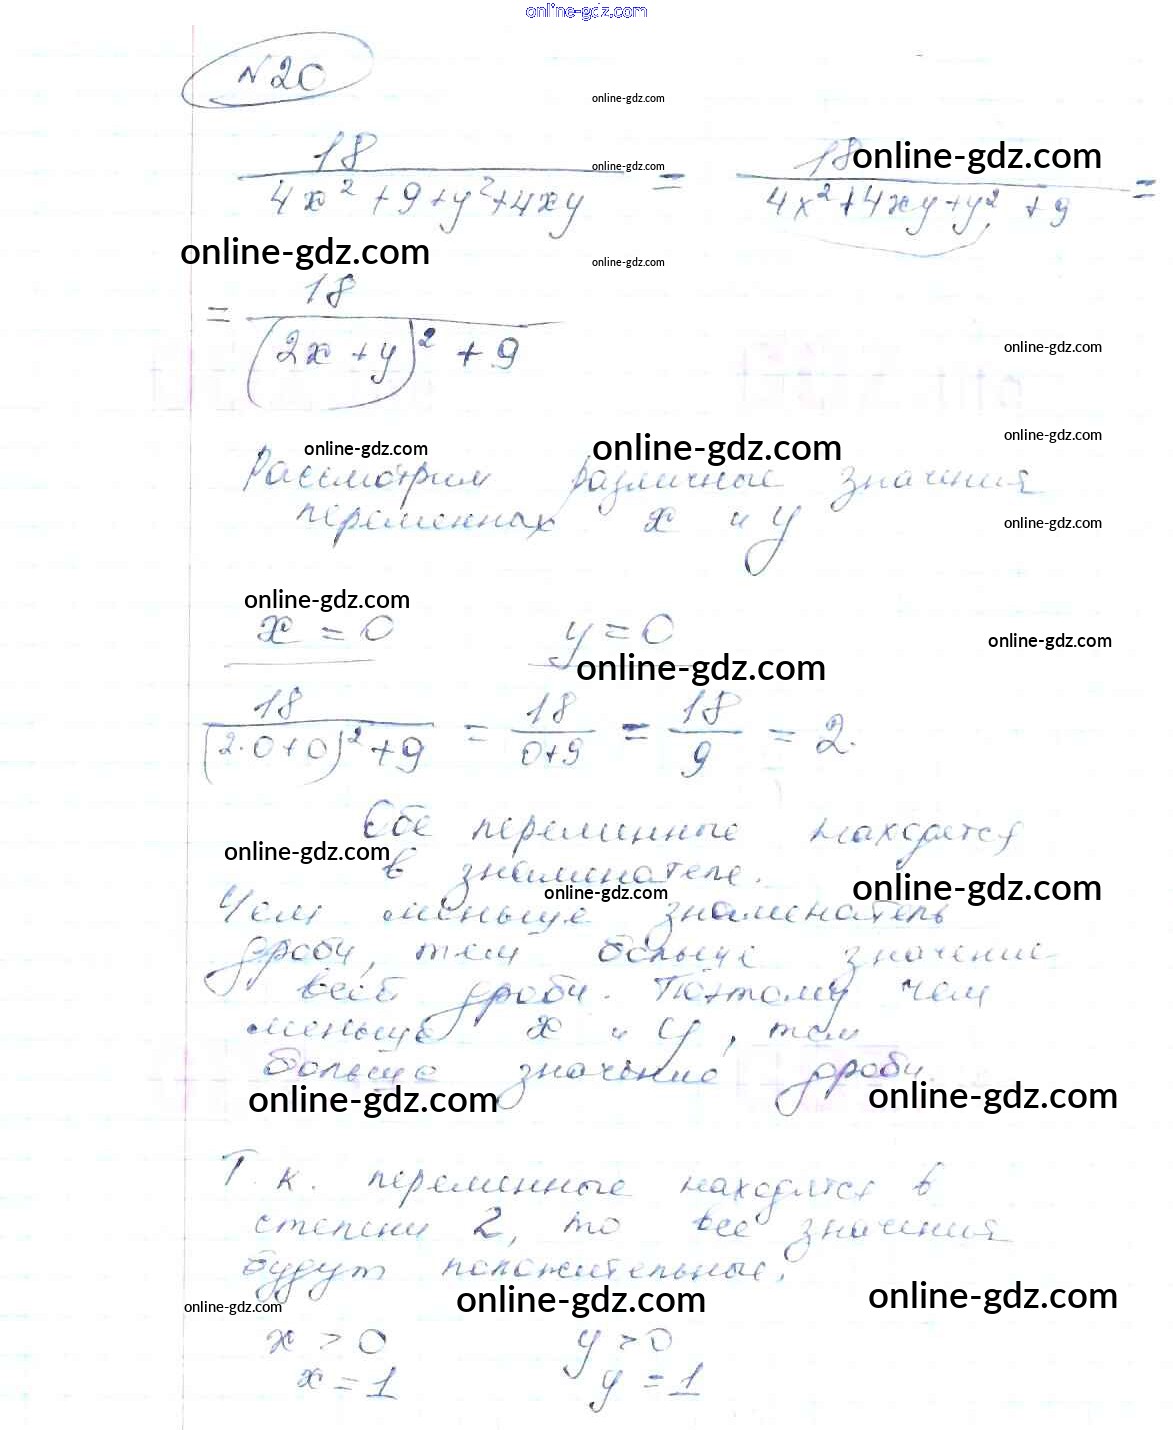 online-gdz.com
N20
online-gdz.com
18 / (4x² + 9 + y² + 4xy) = 18 / (4x² + 4xy + y² + 9) =
online-gdz.com online-gdz.com
online-gdz.com online-gdz.com
= 18 / ((2x + y)² + 9)
online-gdz.com
online-gdz.com
online-gdz.com online-gdz.com
Рассмотрим различные значения
переменных x и y
online-gdz.com
online-gdz.com
x = 0 y = 0
online-gdz.com
online-gdz.com
18 / ((2·0+0)² + 9) = 18 / (0+9) = 18 / 9 = 2.
Обе переменные находятся
online-gdz.com
в знаменателе.
online-gdz.com online-gdz.com
Чем меньше знаменатель
дроби, тем больше значение
всей дроби. Поэтому чем
меньше x и y, тем
больше значение дроби.
online-gdz.com online-gdz.com
Т.к. переменные находятся в
степени 2, то все значения
будут положительные.
online-gdz.com online-gdz.com online-gdz.com
x > 0 y > 0
x = 1 y = 1